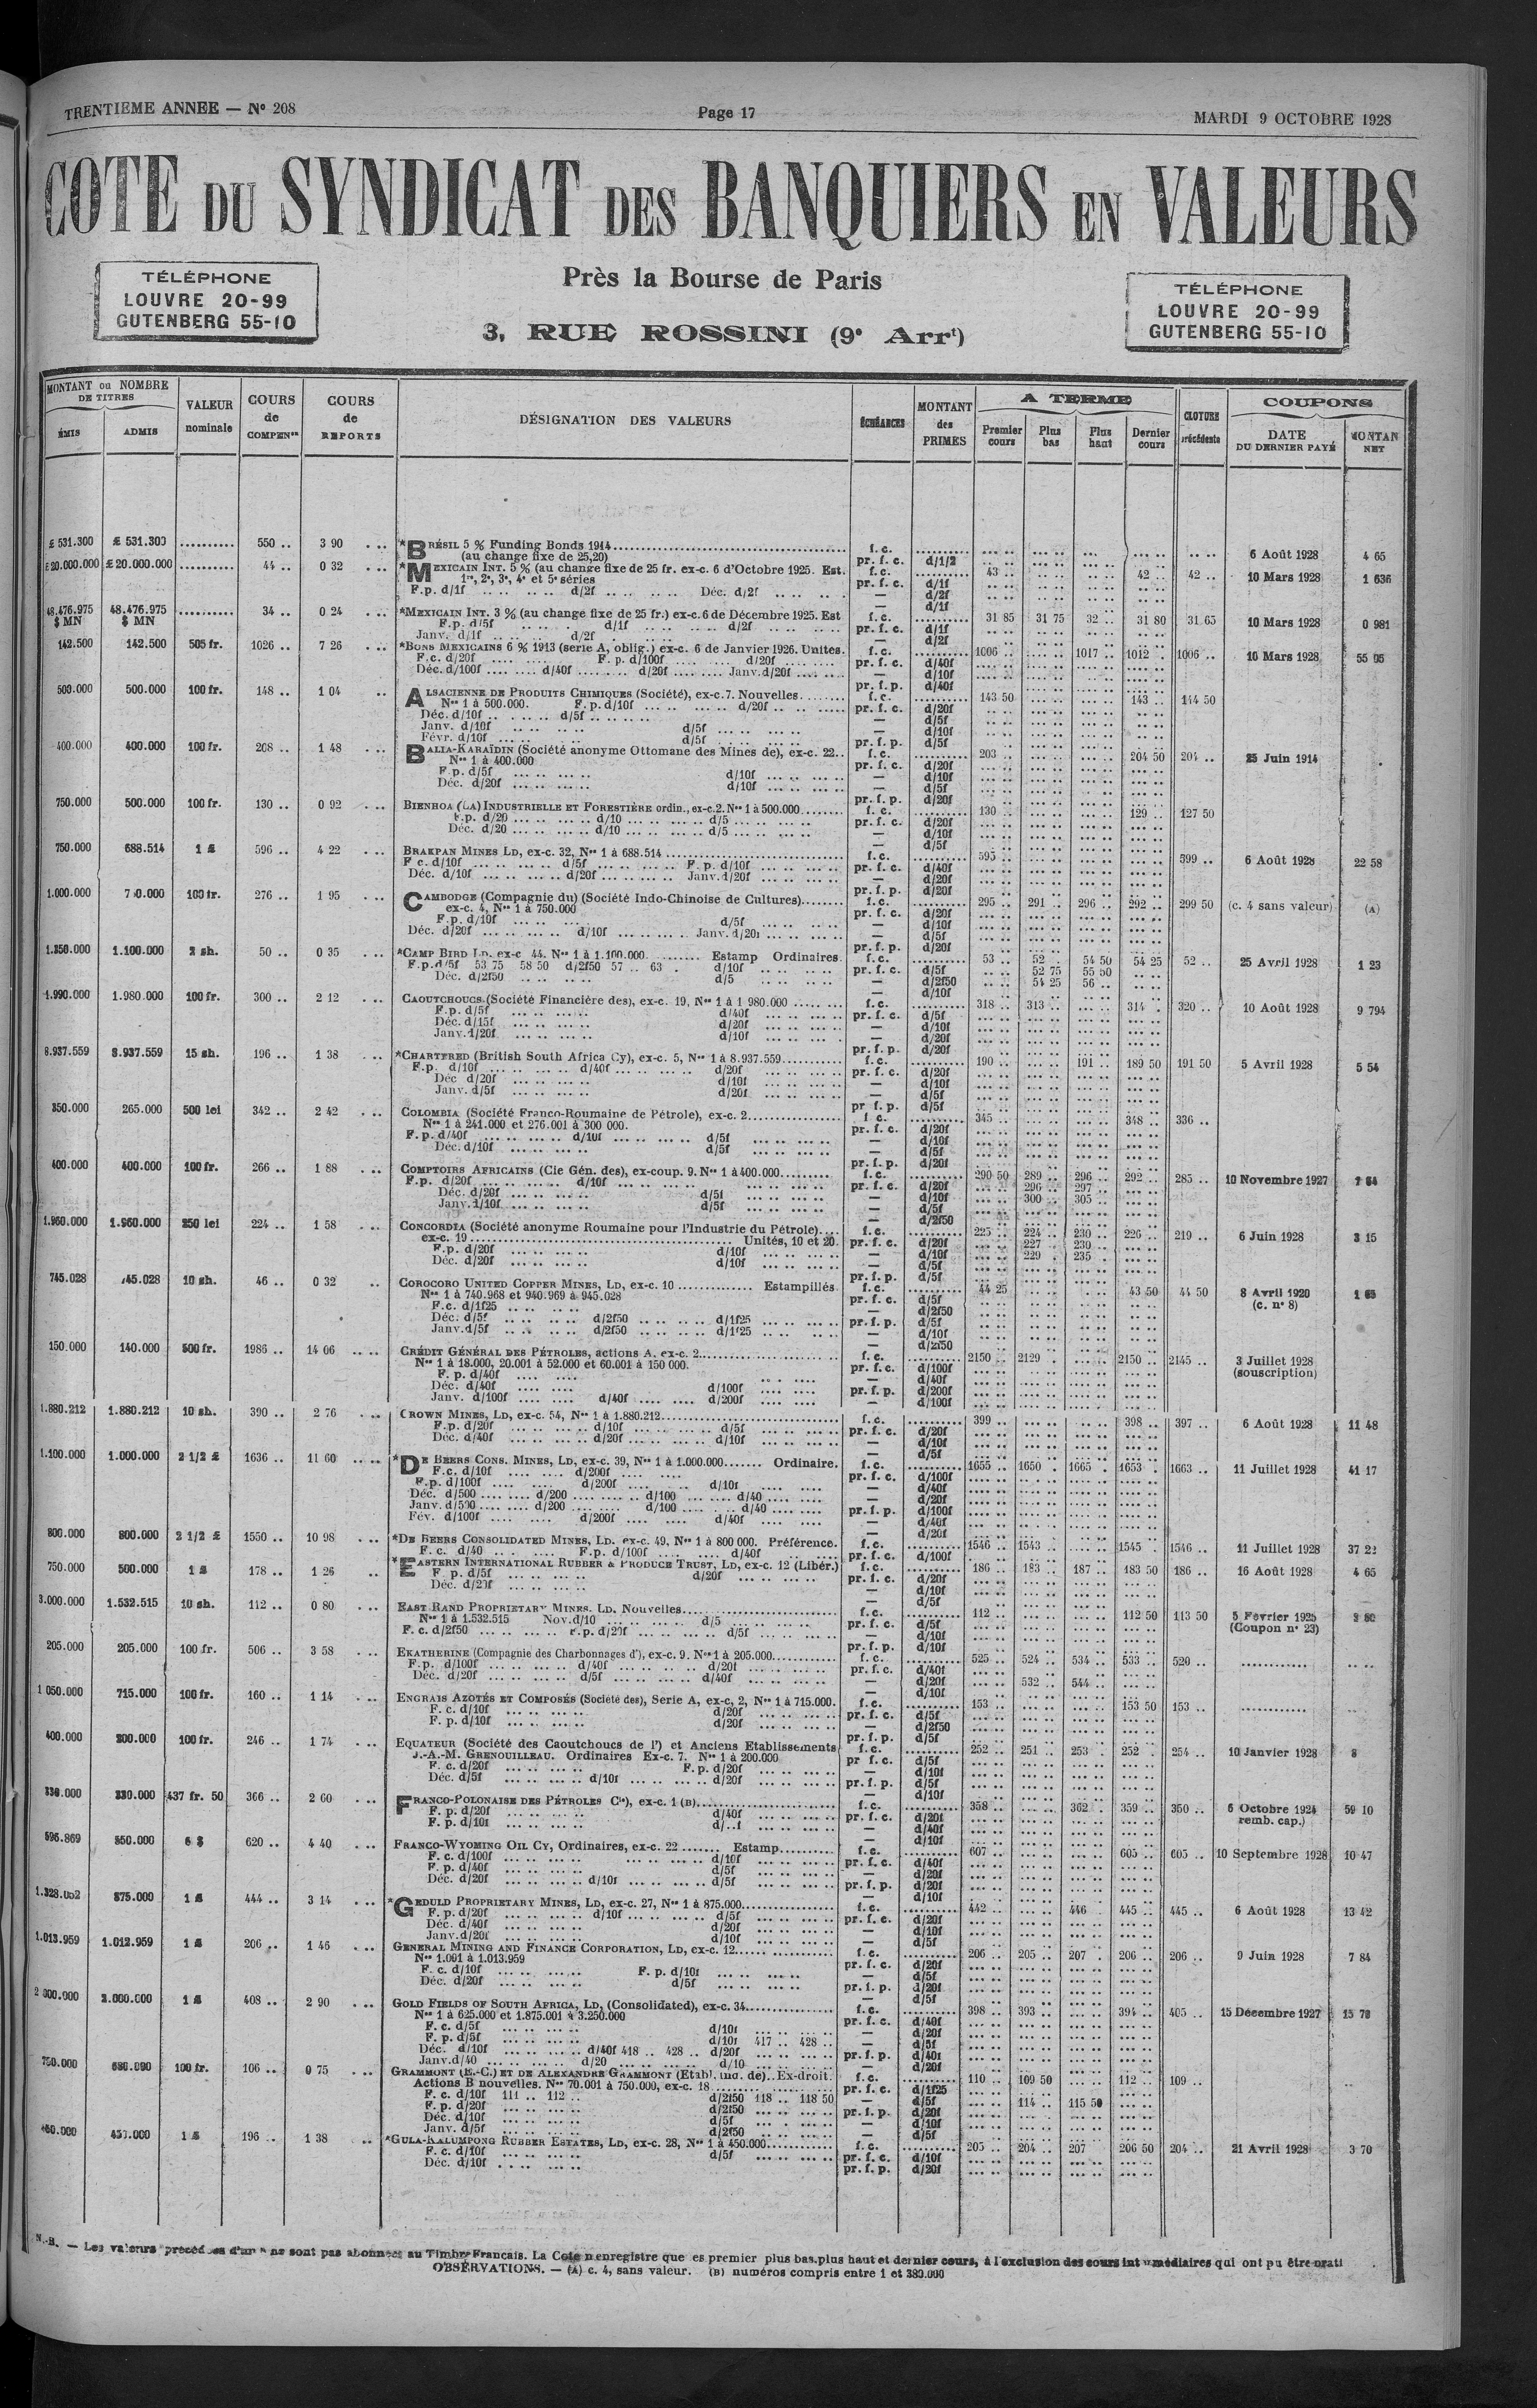 TRENTIEME ANNEE — N° 208
Page 17
MARDI 9 OCTOBRE 1928
COTE DU SYNDICAT DES BANQUIERS EN VALEURS
TÉLÉPHONE
LOUVRE 20-99
GUTENBERG 55-10
Près la Bourse de Paris
3, RUE ROSSINI (9e Arrt)
TÉLÉPHONE
LOUVRE 20-99
GUTENBERG 55-10
MONTANT ou NOMBRE DE TITRES
ÉMIS ADMIS
VALEUR nominale
COURS de COMPENon
COURS de REPORTS
DÉSIGNATION DES VALEURS
ÉCHÉANCES
MONTANT des PRIMES
A TERME
Premier cours Plus bas Plus haut Dernier cours
CLOTURE précédente
COUPONS
DATE DU DERNIER PAYÉ
MONTAN NET
£ 531.300 £ 531.300 .......... 550 .. 3 90 *BRÉSIL 5 % Funding Bonds 1914 f. c. 6 Août 1928 4 65
(au change fixe de 25,20) pr. f. c. d/1/2
£20.000.000 £20.000.000 .......... 44 .. 0 32 *MEXICAIN INT. 5 % (au change fixe de 25 fr. ex-c. 6 d'Octobre 1925. Est. f. c. 43 .. 42 .. 42 .. 10 Mars 1928 1 636
1re, 2e, 3e, 4e et 5e séries pr. f. c. d/1f
F.p. d/1f d/2f Déc. d/2f — d/2f
— d/1f
48.476.975 $ MN 48.476.975 $ MN .......... 34 .. 0 24 *MEXICAIN INT. 3 % (au change fixe de 25 fr.) ex-c. 6 de Décembre 1925. Est f. c. 31 85 31 75 32 .. 31 80 31 65 10 Mars 1928 0 981
F.p. d/5f d/1f d/2f pr. f. c. d/1f
Janv. d/1f d/2f — d/2f
142.500 142.500 505 fr. 1026 .. 7 26 *BONS MEXICAINS 6 % 1913 (serie A, oblig.) ex-c. 6 de Janvier 1926. Unites. f. c. 1006 .. 1017 .. 1012 .. 1006 .. 10 Mars 1928 55 95
F.c. d/20f F. p. d/100f d/20f pr. f. c. d/40f
Déc. d/100f d/40f d/20f Janv. d/20f — d/10f
pr. f. p. d/40f
500.000 500.000 100 fr. 148 .. 1 04 ALSACIENNE DE PRODUITS CHIMIQUES (Société), ex-c. 7. Nouvelles f. c. 143 50 143 .. 144 50
Nos 1 à 500.000. F. p. d/10f d/20f pr. f. c. d/20f
Déc. d/10f d/5f — d/5f
Janv. d/10f d/5f — d/10f
Févr. d/10f d/5f pr. f. p. d/5f
400.000 400.000 100 fr. 208 .. 1 48 BALIA-KARAÏDIN (Société anonyme Ottomane des Mines de), ex-c. 22.. f. c. 203 .. 204 50 204 .. 25 Juin 1914
Nos 1 à 400.000 pr. f. c. d/20f
F.p. d/5f d/10f — d/10f
Déc. d/20f d/10f — d/5f
pr. f. p. d/20f
750.000 500.000 100 fr. 130 .. 0 92 BIENHOA (LA) INDUSTRIELLE ET FORESTIÈRE ordin., ex-c. 2. Nos 1 à 500.000 f. c. 130 .. 129 .. 127 50
F.p. d/20 d/10 d/5 pr. f. c. d/20f
Déc. d/20 d/10 d/5 — d/10f
— d/5f
750.000 688.514 1 £ 596 .. 4 22 BRAKPAN MINES LD, ex-c. 32, Nos 1 à 688.514 f. c. 595 .. 599 .. 6 Août 1928 22 58
F c. d/10f d/5f F. p. d/10f pr. f. c. d/40f
Déc. d/10f d/20f Janv. d/20f — d/20f
pr. f. p. d/20f
1.000.000 100 fr. 276 .. 1 95 CAMBODGE (Compagnie du) (Société Indo-Chinoise de Cultures) f. c. 295 .. 291 .. 296 .. 292 .. 299 50 (c. 4 sans valeur) (A)
ex-c. 4, Nos 1 à 750.000 pr. f. c. d/20f
F.p. d/10f d/5f — d/10f
Déc. d/20f d/10f Janv. d/20f — d/5f
pr. f. p. d/20f
1.350.000 1.100.000 2 sh. 50 .. 0 35 *CAMP BIRD LD. ex-c 44. Nos 1 à 1.100.000. Estamp Ordinaires. f. c. 53 .. 52 .. 54 50 54 25 52 .. 25 Avril 1928 1 23
F.p. d/5f 53 75 58 50 d/2f50 57 .. 63 . d/10f pr. f. c. d/5f 52 75 55 50
Déc. d/2f50 d/5 — d/2f50 54 25 56 ..
— d/10f
1.990.000 1.980.000 100 fr. 300 .. 2 12 CAOUTCHOUCS (Société Financière des), ex-c. 19, Nos 1 à 1 980.000 f. c. 318 .. 313 .. 314 . 320 .. 10 Août 1928 9 794
F.p. d/5f d/40f pr. f. c. d/5f
Déc. d/15f d/20f — d/10f
Janv. d/20f d/10f — d/20f
pr. f. p. d/20f
8.937.559 8.937.559 15 sh. 196 .. 1 38 *CHARTERED (British South Africa Cy), ex-c. 5, Nos 1 à 8.937.559 f. c. 190 .. 191 .. 189 50 191 50 5 Avril 1928 5 54
F.p. d/10f d/40f d/20f pr. f. c. d/20f
Déc d/20f d/10f — d/10f
Janv. d/5f d/20f — d/5f
pr f. p. d/5f
350.000 265.000 500 lei 342 .. 2 42 COLOMBIA (Société Franco-Roumaine de Pétrole), ex-c. 2 f. c. 345 .. 348 .. 336 ..
Nos 1 à 241.000 et 276.001 à 300 000. pr. f. c. d/20f
F. p. d/40f d/10f d/5f — d/10f
Déc. d/10f d/5f — d/5f
pr. f. p. d/20f
400.000 400.000 100 fr. 266 .. 1 88 COMPTOIRS AFRICAINS (Cie Gén. des), ex-coup. 9. Nos 1 à 400.000 f. c. 290 50 289 .. 296 .. 292 .. 285 .. 10 Novembre 1927
F.p. d/20f d/10f pr. f. c. d/20f 296 .. 297 ..
Déc. d/20f d/5f — d/10f 300 .. 305 ..
Janv. d/10f d/5f — d/5f
— d/2f50
1.960.000 1.960.000 250 lei 224 .. 1 58 CONCORDIA (Société anonyme Roumaine pour l'Industrie du Pétrole) f. c. 225 .. 224 .. 230 .. 226 .. 219 .. 6 Juin 1928 3 15
ex-c. 19 Unités, 10 et 20. pr. f. c. d/20f 227 .. 230 ..
F.p. d/20f d/10f — d/10f 229 . 235 ..
Déc. d/20f d/10f — d/5f
pr. f. p. d/5f
745.028 745.028 10 sh. 46 .. 0 32 COROCORO UNITED COPPER MINES, LD, ex-c. 10 Estampillés f. c. 44 25 43 50 44 50 8 Avril 1920
Nos 1 à 740.968 et 940.969 à 945.028 pr. f. c. d/5f (c. n° 8)
F.c. d/1f25 — d/2f50
Déc. d/5f d/2f50 d/1f25 pr. f. p. d/5f
Janv. d/5f d/2f50 d/1f25 — d/10f
— d/2f50
150.000 140.000 500 fr. 1986 .. 14 06 CRÉDIT GÉNÉRAL DES PÉTROLES, actions A, ex-c. 2 f. c. 2150 .. 2129 . 2150 .. 2145 .. 3 Juillet 1928
Nos 1 à 18.000, 20.001 à 52.000 et 60.001 à 150 000. pr. f. c. d/100f (souscription)
F. p. d/40f — d/40f
Déc. d/40f d/100f pr. f. p. d/200f
Janv. d/100f d/40f d/200f — d/100f
1.880.212 1.880.212 10 sh. 390 .. 2 76 CROWN MINES, LD, ex-c. 54, Nos 1 à 1.880.212 f. c. 399 .. 398 .. 397 .. 6 Août 1928 11 48
F.p. d/20f d/10f d/5f pr. f. c. d/20f
Déc. d/40f d/20f d/10f — d/10f
— d/5f
1.100.000 1.000.000 2 1/2 £ 1636 .. 11 60 *DE BEERS CONS. MINES, LD, ex-c. 39, Nos 1 à 1.000.000 Ordinaire. f. c. 1655 .. 1650 .. 1665 . 1653 . 1663 .. 11 Juillet 1928 41 17
F.c. d/10f d/200f pr. f. c. d/100f
F.p. d/100f d/200f d/10f — d/40f
Déc. d/500 d/200 d/100 d/40 — d/20f
Janv. d/500 d/200 d/100 d/40 pr. f. p. d/100f
Fév. d/100f d/200f d/40f — d/40f
— d/20f
800.000 800.000 2 1/2 £ 1550 .. 10 98 *DE BEERS CONSOLIDATED MINES, LD. ex-c. 49, Nos 1 à 800 000. Préférence. f. c. 1546 .. 1543 .. 1545 . 1546 .. 11 Juillet 1928 37 22
F. c. d/40 F.p. d/100f d/40f pr. f. c. d/100f
750.000 500.000 1 £ 178 .. 1 26 *EASTERN INTERNATIONAL RUBBER & PRODUCE TRUST, LD, ex-c. 12 (Libér.) f. c. 186 .. 183 .. 187 .. 183 50 186 .. 16 Août 1928 4 65
F p. d/5f d/20f pr. f. c. d/20f
Déc. d/20f — d/10f
— d/5f
3.000.000 1.532.515 10 sh. 112 .. 0 80 EAST RAND PROPRIETARY MINES. LD. Nouvelles f. c. 112 .. 112 50 113 50 5 Février 1925
Nos 1 à 1.532.515 Nov. d/10 d/5 pr. f. c. d/5f (Coupon n° 23)
F. c. d/2f50 F.p. d/20f d/5f — d/10f
pr. f. p. d/10f
205.000 205.000 100 fr. 506 .. 3 58 EKATHERINE (Compagnie des Charbonnages d'), ex-c. 9. Nos 1 à 205.000 f. c. 525 .. 524 .. 534 .. 533 .. 520 ..
F.p. d/100f d/40f d/20f pr. f. c. d/40f
Déc. d/20f d/5f d/40f — d/20f 532 .. 544 ..
— d/10f
1 050.000 715.000 100 fr. 160 .. 1 14 ENGRAIS AZOTÉS ET COMPOSÉS (Société des), Serie A, ex-c, 2, Nos 1 à 715.000. f. c. 153 .. 153 50 153 ..
F. c. d/10f d/20f pr. f. c. d/5f
F. p. d/10f d/20f — d/2f50
pr. f. p. d/5f
400.000 200.000 100 fr. 246 .. 1 74 EQUATEUR (Société des Caoutchoucs de l') et Anciens Etablissements f. c. 252 .. 251 .. 253 . 252 . 254 .. 10 Janvier 1928 8
J.-A.-M. GRENOUILLEAU. Ordinaires Ex-c. 7. Nos 1 à 200.000 pr f. c. d/5f
F. c. d/20f F.p. d/20f — d/10f
Déc. d/5f d/10f d/20f pr. f. p. d/5f
— d/10f
330.000 330.000 437 fr. 50 366 .. 2 60 FRANCO-POLONAISE DES PÉTROLES Cie), ex-c. 1 (B) f. c. 358 .. 362 . 359 .. 350 .. 6 Octobre 1924 59 10
F. p. d/20f d/40f pr. f. c. d/20f remb. cap.)
F. p. d/10f — d/40f
— d/10f
596.869 550.000 6 $ 620 .. 4 40 FRANCO-WYOMING OIL CY, Ordinaires, ex-c. 22 Estamp f. c. 607 .. 605 .. 605 .. 10 Septembre 1928 10 47
F. c. d/100f d/10f pr. f. c. d/40f
F. p. d/40f d/5f — d/20f
Déc. d/20f d/10f d/5f pr. f. p. d/20f
— d/10f
875.000 1 £ 444 .. 3 14 *GEDULD PROPRIETARY MINES, LD, ex-c. 27, Nos 1 à 875.000 f. c. 442 .. 446 . 445 .. 445 .. 6 Août 1928 13 42
F. p. d/20f d/10f d/5f pr. f. c. d/20f
Déc. d/40f d/20f — d/10f
Janv. d/20f d/10f — d/5f
1.013.959 1.012.959 1 £ 206 .. 1 46 GENERAL MINING AND FINANCE CORPORATION, LD, ex-c. 12 f. c. 206 .. 205 .. 207 . 206 .. 206 .. 9 Juin 1928 7 84
Nos 1.001 à 1.013.959 pr. f. c. d/20f
F. c. d/10f F. p. d/10f — d/5f
Déc. d/20f d/5f pr. f. p. d/20f
— d/5f
2.000.000 1 £ 408 .. 2 90 GOLD FIELDS OF SOUTH AFRICA, LD, (Consolidated), ex-c. 34 f. c. 398 .. 393 .. 394 .. 405 .. 15 Décembre 1927
Nos 1 à 625.000 et 1.875.001 à 3.250.000 pr. f. c. d/40f
F. c. d/5f d/10f — d/20f
F. p. d/5f d/10f 417 .. 428 .. — d/5f
Déc. d/10f d/40f 418 .. 428 .. d/20f pr. f. p. d/40f
Janv. d/40 d/20 d/10 — d/20f
750.000 680.000 100 fr. 106 .. 0 75 GRAMMONT (E.-C.) ET DE ALEXANDRE GRAMMONT (Etabl. de).. Ex-droit. f. c. 110 .. 109 50 112 .. 109 ..
Actions B nouvelles. Nos 70.001 à 750.000, ex-c. 18 pr. f. c. d/1f25
F. c. d/10f 111 .. 112 .. d/2f50 118 .. 118 50 — d/5f 114 .. 115 50
F. p. d/20f d/2f50 pr. f. p. d/20f
Déc. d/10f d/5f — d/10f
Janv. d/5f d/2f50 — d/5f
1 £ 196 .. 1 38 *GULA-KALUMPONG RUBBER ESTATES, LD, ex-c. 28, Nos 1 à 450.000 f. c. 205 .. 204 .. 207 206 50 204 .. 21 Avril 1928 3 70
F. c. d/10f d/5f pr. f. c. d/10f
Déc. d/10f pr. f. p. d/20f
N.-B. — Les valeurs précédées d'un * ne sont pas abonnées au Timbre Francais. La Cote n'enregistre que es premier plus bas, plus haut et dernier cours, à l'exclusion des cours intermédiaires qui ont pu être prati
OBSERVATIONS. — (A) c. 4, sans valeur. (B) numéros compris entre 1 et 380.000